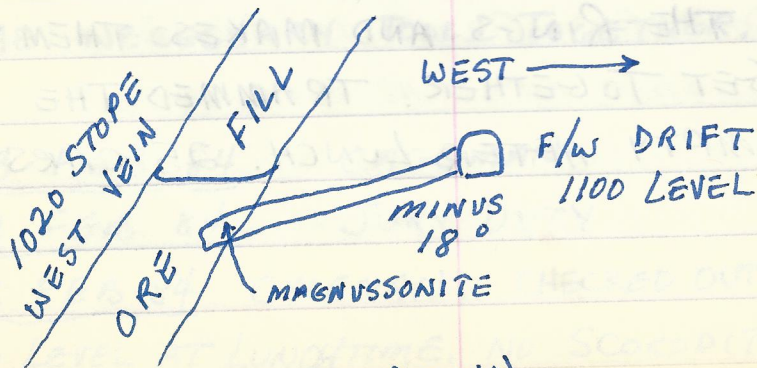 WEST
1020 STOPE
WEST VEIN
FILL
F/W DRIFT
1100 LEVEL
MINUS
18°
ORE
MAGNUSSONITE